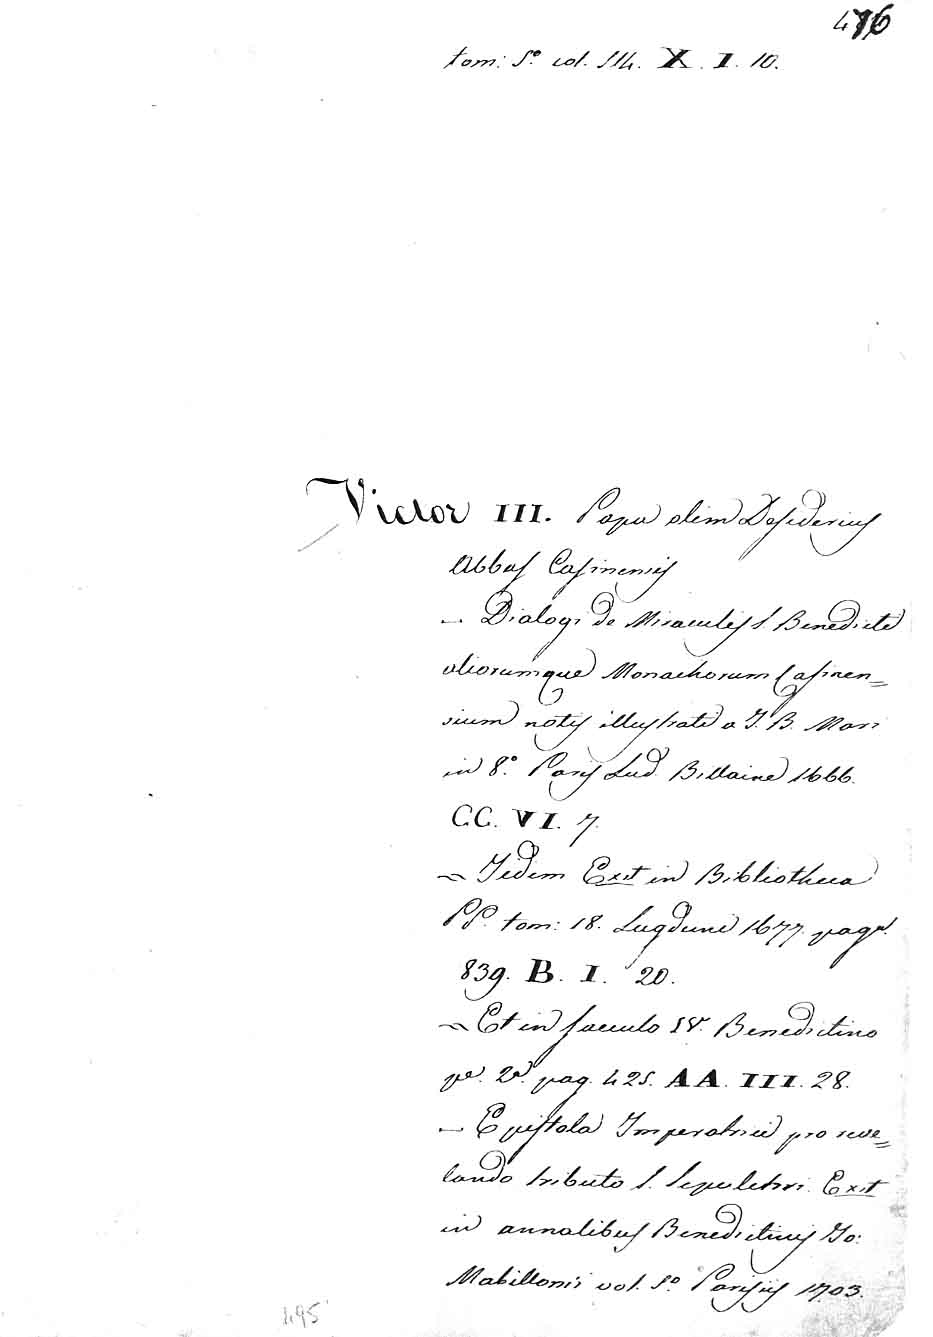 476
tom: 5º col. 514. X. I. 10.
Victor III. Papa olim Desiderius
Abbas Casinensis
— Dialogi de Miraculis S. Benedicti
aliorumque Monachorum Casinen=
sium notis illustrati a J. B. Mari
in 8º. Paris Lud. Billaine 1666.
CC. VI. 7.
~ Iidem Exit in Bibliotheca
PP. tom: 18. Lugduni 1677. pagª.
839. B. I. 20.
~ Et in saeculo IVº. Benedictino
pª. 2ª. pag. 425. AA. III. 28.
— Epistola Imperatrici pro reve=
lando tributo S. Sepulchri. Exit
in annalibus Benedictinis Jo:
Mabillonis vol. 5º Parisiis 1703.
495